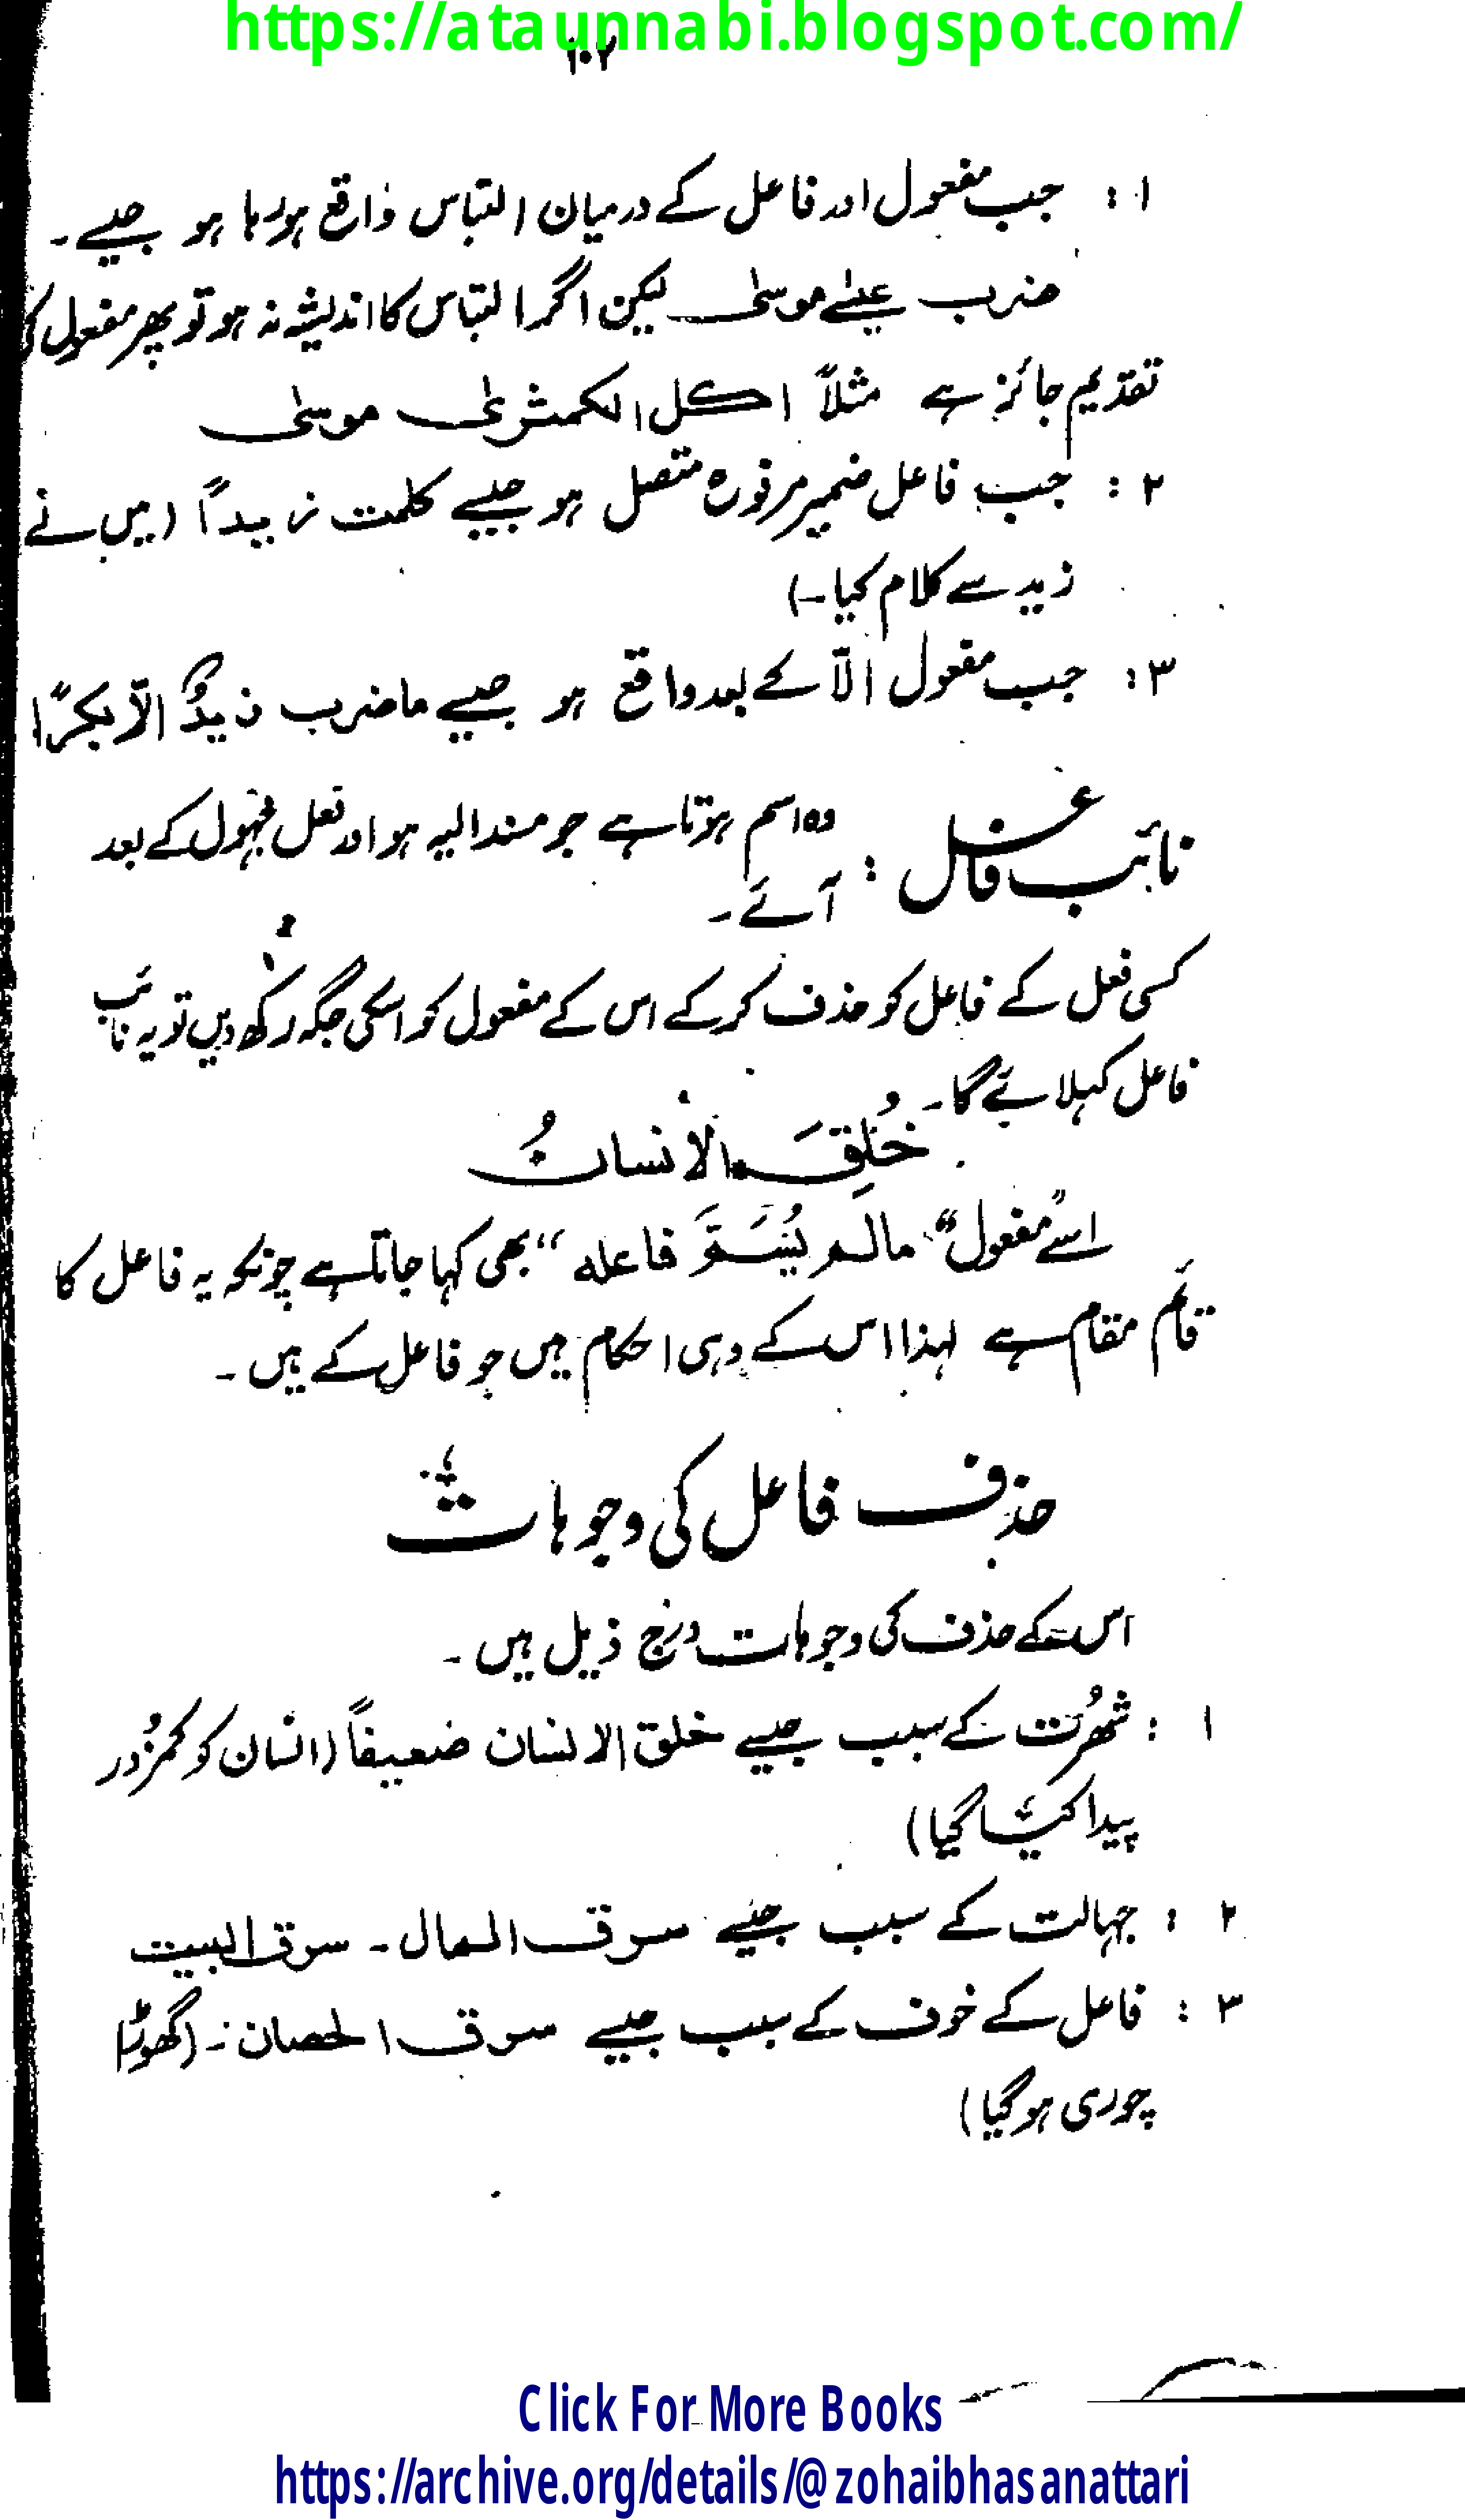 https://ataunnabi.blogspot.com/
۱۰۲
۱ : جب مفعول اور فاعل کے درمیان التباس واقع ہو رہا ہو جیسے ۔
ضرب عیسٰے موسیٰ لیکن اگر التباس کا اندیشہ نہ ہو تو پھر مفعول کی
تقدیم جائز ہے مثلاً اکل الکمثریٰ موسیٰ
۲ : جب فاعل ضمیر مرفوع متصل ہو جیسے کلمت زیداً (میں نے
زید سے کلام کیا ۔)
۳ : جب مفعول الّا کے بعد واقع ہو جیسے ما ضرب زیدٌ الّا بکرًا
نائب فاعل : وہ اسم ہوتا ہے جو مسند الیہ ہو اور فعل مجہول کے بعد
آئے ۔
کسی فعل کے فاعل کو حذف کر کے اس کے مفعول کو اسکی جگہ رکھ دیں تو یہ نائب
فاعل کہلائے گا ۔
خُلِقَ الانسانُ
اسے مفعول “ مالم یُسَمَّ فاعله “ بھی کہا جاتا ہے چونکہ یہ فاعل کا
قائم مقام ہے لہذا اس کے وہی احکام ہیں جو فاعل کے ہیں ۔
حذف فاعل کی وجوہات
اس کے حذف کی وجوہات درج ذیل ہیں ۔
۱ : شہرت کے سبب جیسے خلق الانسان ضعیفاً (انسان کو کمزور
پیدا کیا گیا)
۲ : جہالت کے سبب جیسے سرق المال ۔ سرق البیت
۳ : فاعل کے خوف کے سبب جیسے سرق الحصان : ۔ (گھوڑا
چوری ہو گیا)
Click For More Books
https://archive.org/details/@zohaibhasanattari